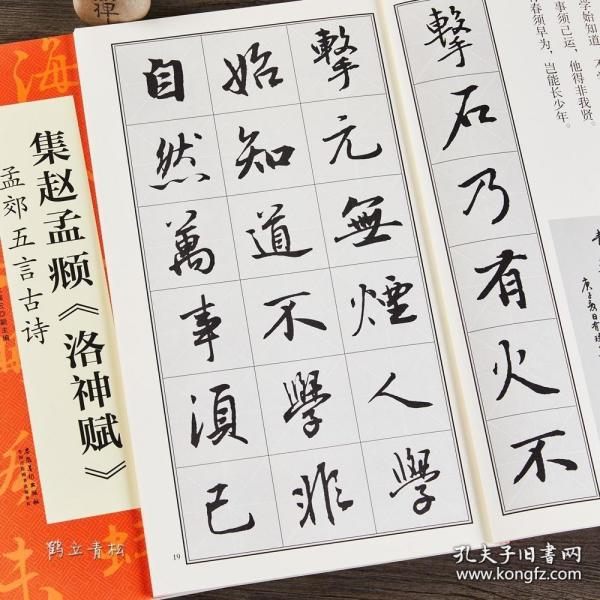 学始知道，不学
事须己运，他得非我贤。
春须早为，岂能长少年。
擊石乃有火不
擊元無煙人學
始知道不學非
自然萬事須已
19
禪
集赵孟𫖯《洛神赋》
孟郊五言古诗
副主编
海
鹤立青松
孔夫子旧书网
www.kongfz.com